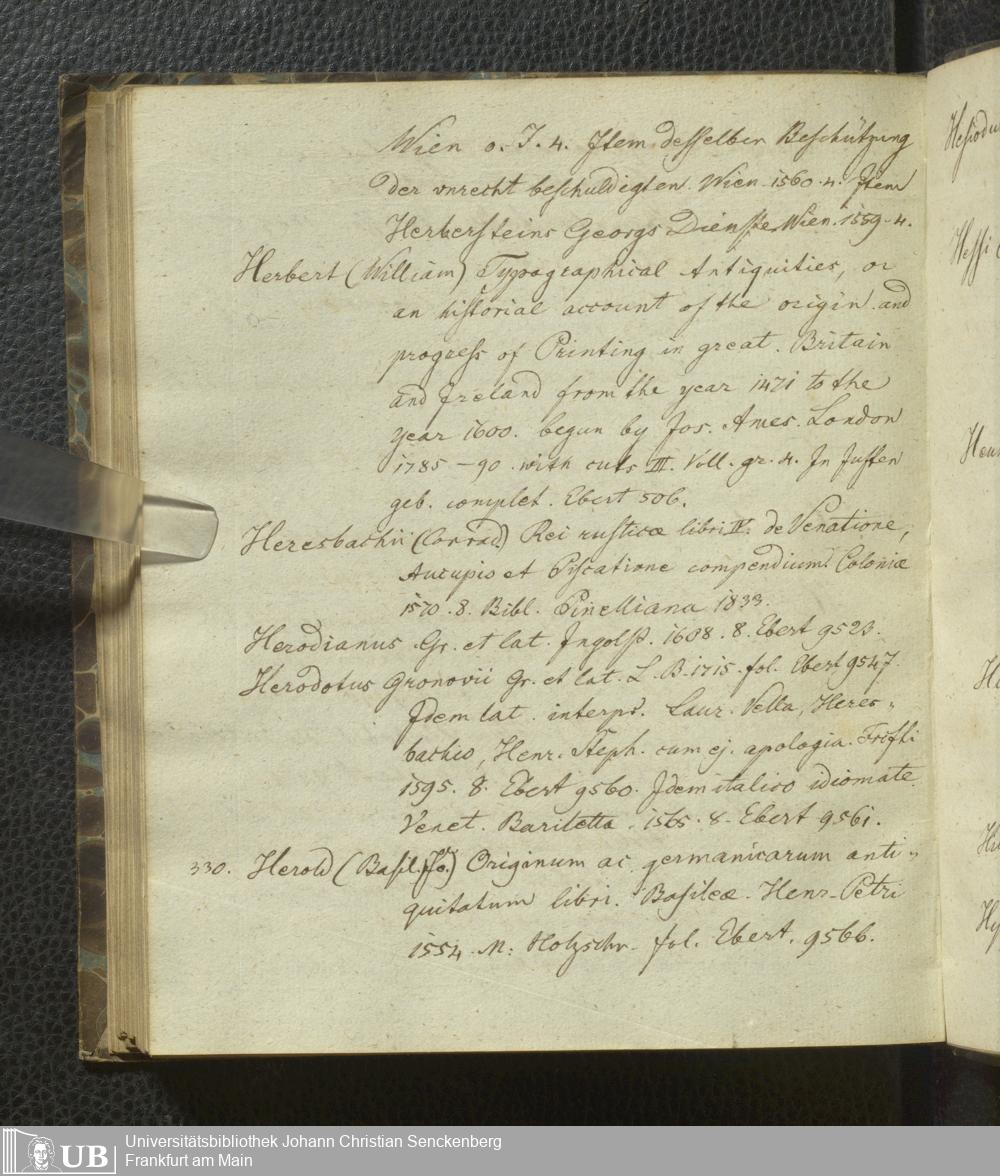 Wien o. J. 4. Item desselben Beschützung
der vnrecht beschuldigten. Wien. 1560. 4. Item
Herbersteins Georgs Dienste. Wien. 1559. 4.
Herbert (William) Typographical Antiquities, or
an historial account of the origin and
progress of Printing in great. Britain
and Ireland from the year 1471 to the
year 1600. begun by Jos. Ames. London
1785 – 90. with cuts III. Voll. gr. 4. In Juften
geb. complet. Ebert 506.
Heresbachii (Conrad.) Rei rusticæ libri IV. de Venatione,
Aucupio et Piscatione compendium. Coloniæ
1570. 8. Bibl. Pinelliana 1833.
Herodianus. Gr. et lat. Ingolst. 1608. 8. Ebert 9523.
Herodotus Gronovii Gr. et lat. L. B. 1715. fol. Ebert 9547.
Idem lat. interpr. Laur. Vella, Heres-
bachio, Henr. Steph. cum ej. apologia. Frcfti
1595. 8. Ebert 9560. Idem italico idiomate.
Venet. Bariletta. 1565. 8. Ebert 9561.
330. Herold (Basil. Jo.) Originum ac germanicarum anti-
quitatum libri. Basileæ. Henr. Petri
1554. M: Holzschn. fol. Ebert. 9566.
Hesiodu
Hessi
UB
Universitätsbibliothek Johann Christian Senckenberg
Frankfurt am Main